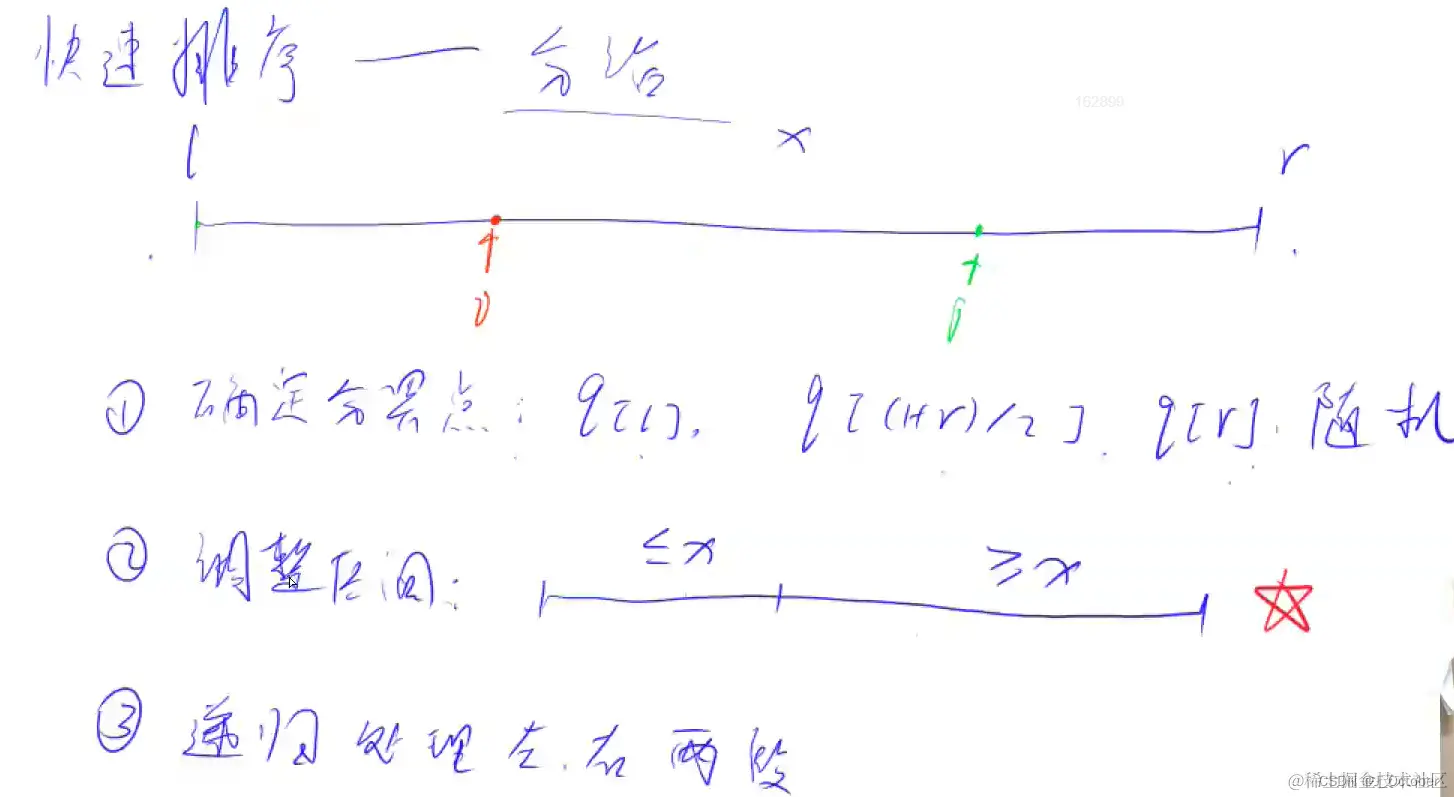 快速排序 —— 分治
162899
x
l r
i j
① 确定分界点: q[l], q[(l+r)/2], q[r], 随机
② 调整区间: ≤x ≥x
③ 递归处理左右两段
@稀土掘金技术社区